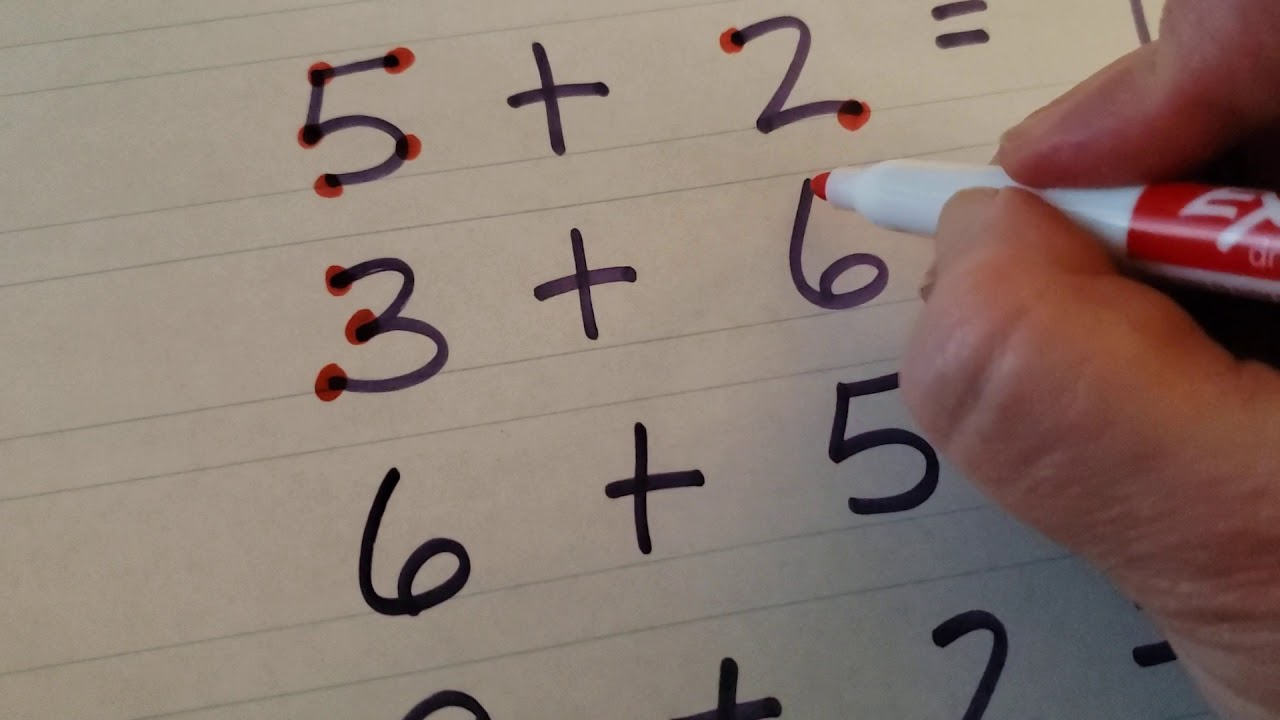 5 + 2 =
3 + 6
6 + 5
+ 2
EX